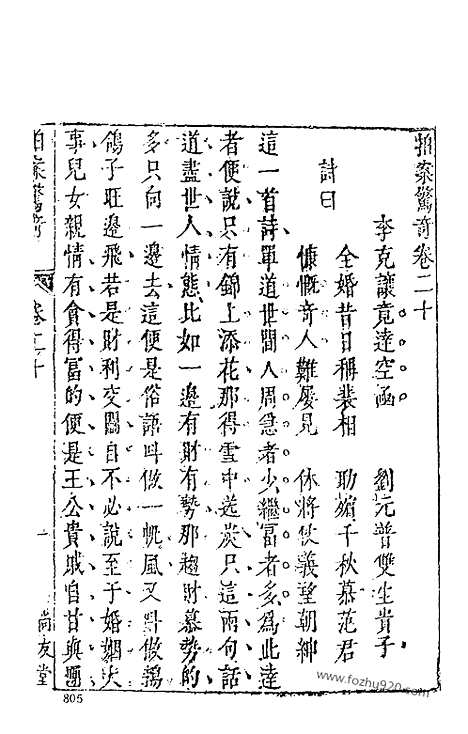 拍案驚奇卷二十
李克讓竟達空函　劉元普雙生貴子
詩曰
全婚昔日稱裴相　助殯千秋慕范君
慷慨奇人難屢見　休將仗義望朝紳
這一首詩單道世間人周急者少繼富者多為此達
者便說只有錦上添花那得雪中送炭只這兩句話
道盡世人情態比如一邊有財有勢那趨財慕勢的
多只向一邊去這便是俗語叫做一帆風又叫做鵓
鴿子旺邊飛若是財利交關自不必說至于婚姻大
事兒女親情有貪得富的便是王公貴戚自甘與團
拍案驚奇　卷二十　一　尚友堂
805
www.fozhu920.com